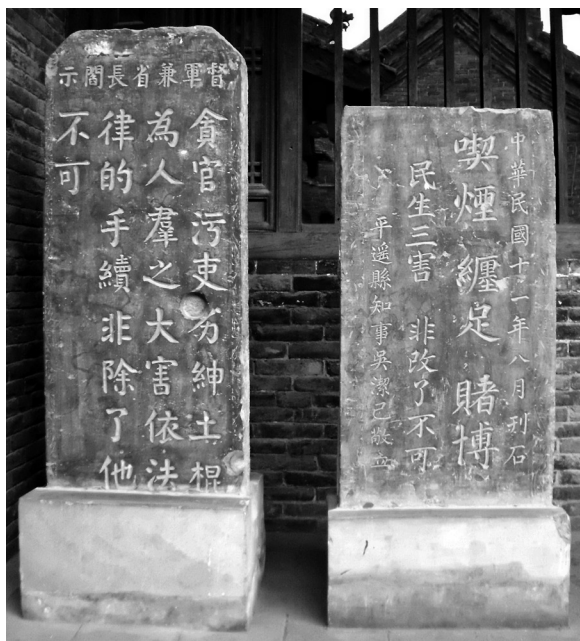 督軍兼省長閻示
貪官污吏劣紳土棍
為人羣之大害依法
律的手續非除了他
不可
中華民國十一年八月刊石
喫煙 纏足 賭博
民生三害 非改了不可
平遥縣知事吳潔己敬立